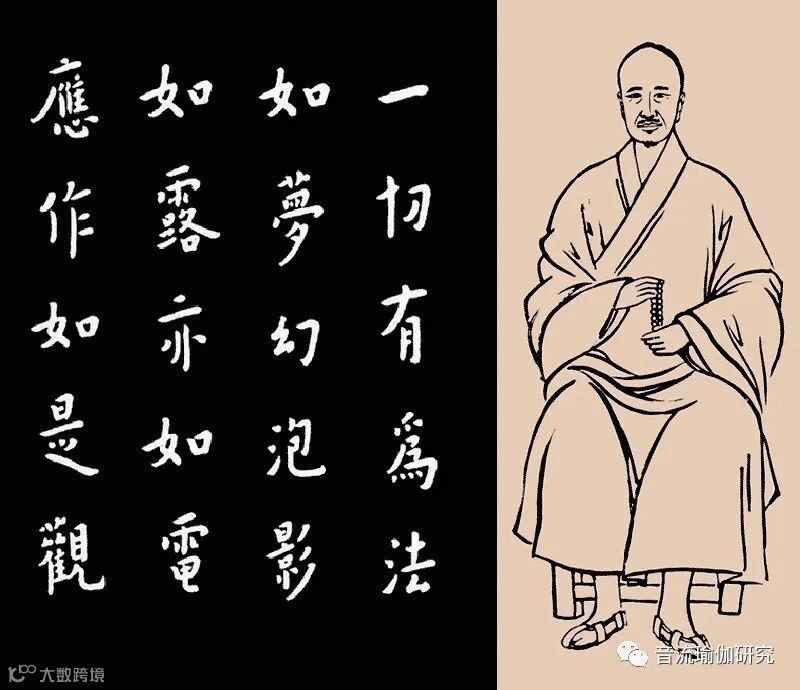 一切有爲法
如夢幻泡影
如露亦如電
應作如是觀
音流瑜伽研究
大数跨境